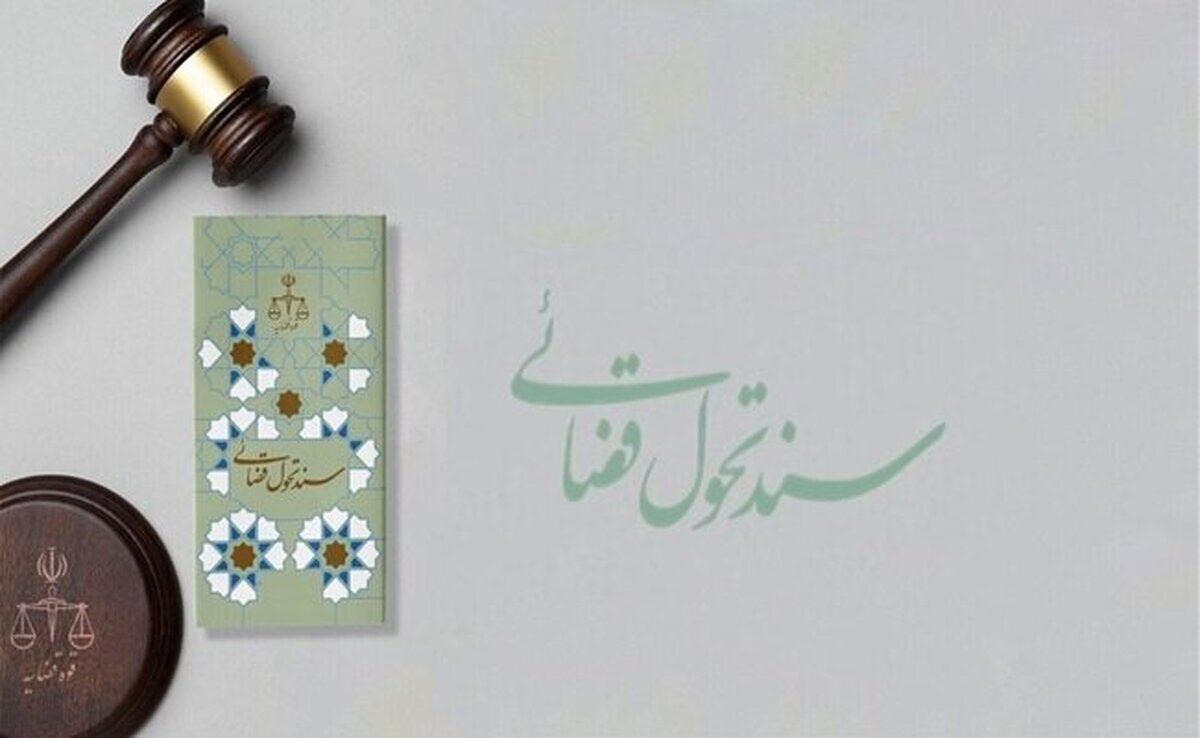 سند تحول قضائی
قوه قضاییه
سند تحول قضائی
قوه قضاییه